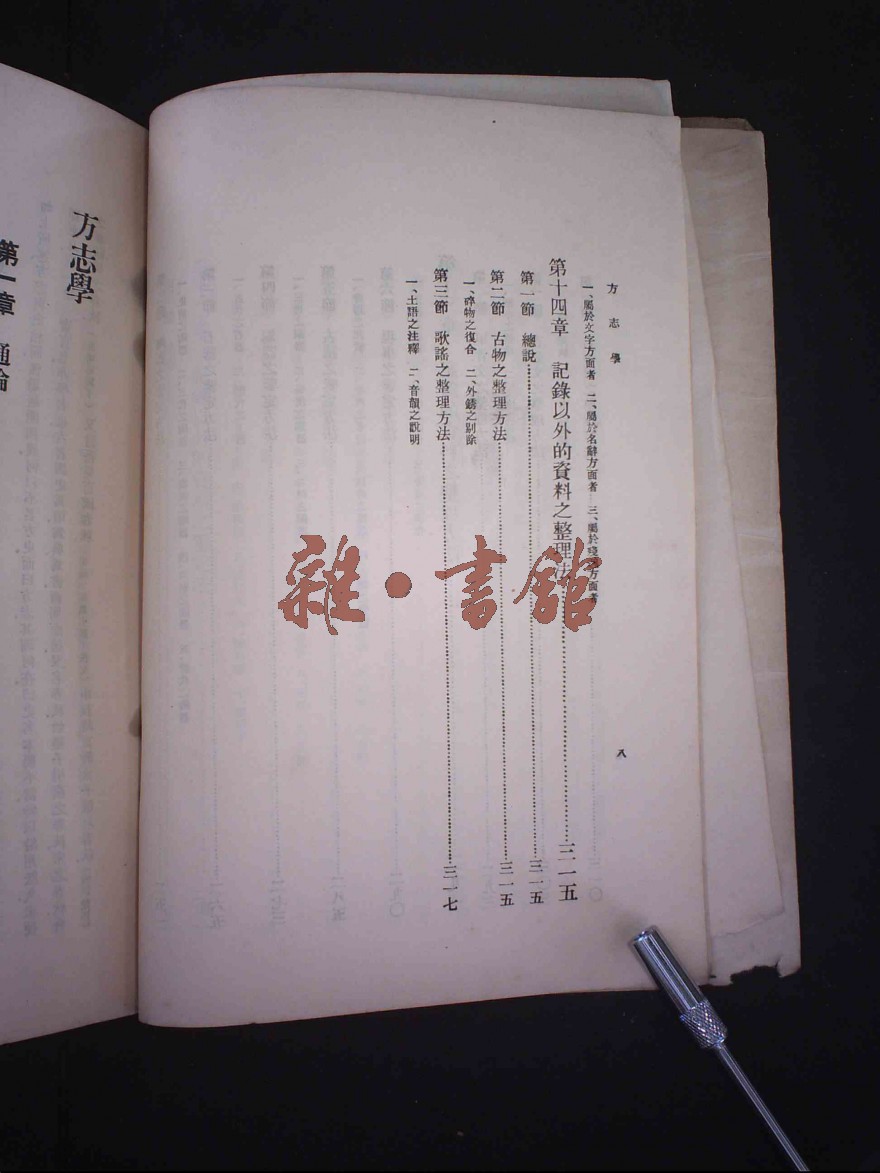 方志學
一、屬於文字方面者 二、屬於名辭方面者 三、屬於 方面者
第十四章 記錄以外的資料之整理法……三一五
第一節 總說……三一五
第二節 古物之整理方法……三一五
一、碎物之復合 二、外銹之剔除
第三節 歌謠之整理方法……三一七
一、土語之注釋 二、音韻之說明
八
方志學
第一章 通論
雜·書館